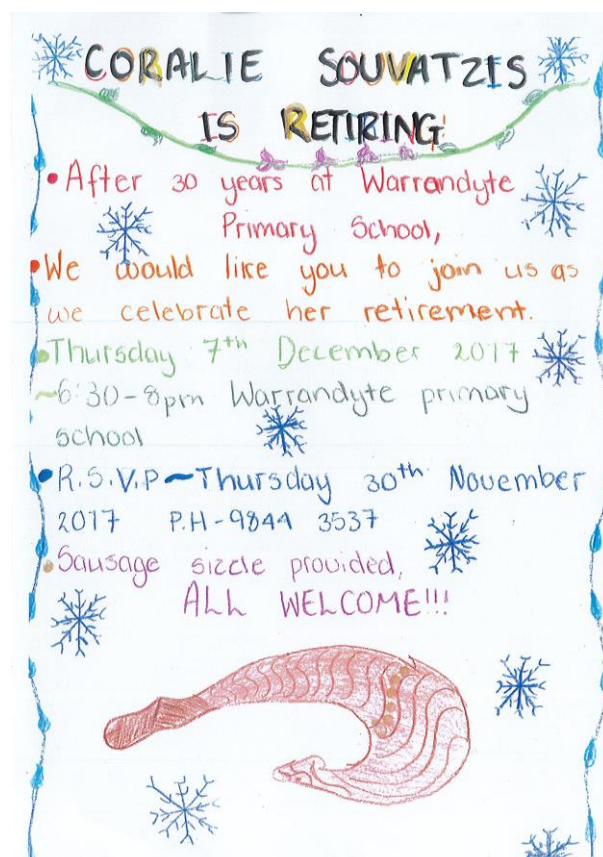 CORALIE SOUVATZIS
IS RETIRING!
• After 30 years at Warrandyte
Primary School,
• We would like you to join us as
we celebrate her retirement.
• Thursday 7th December 2017
~6:30-8pm Warrandyte primary
school
• R.S.V.P ~ Thursday 30th November
2017 P.H-9844 3537
• Sausage sizzle provided,
ALL WELCOME!!!